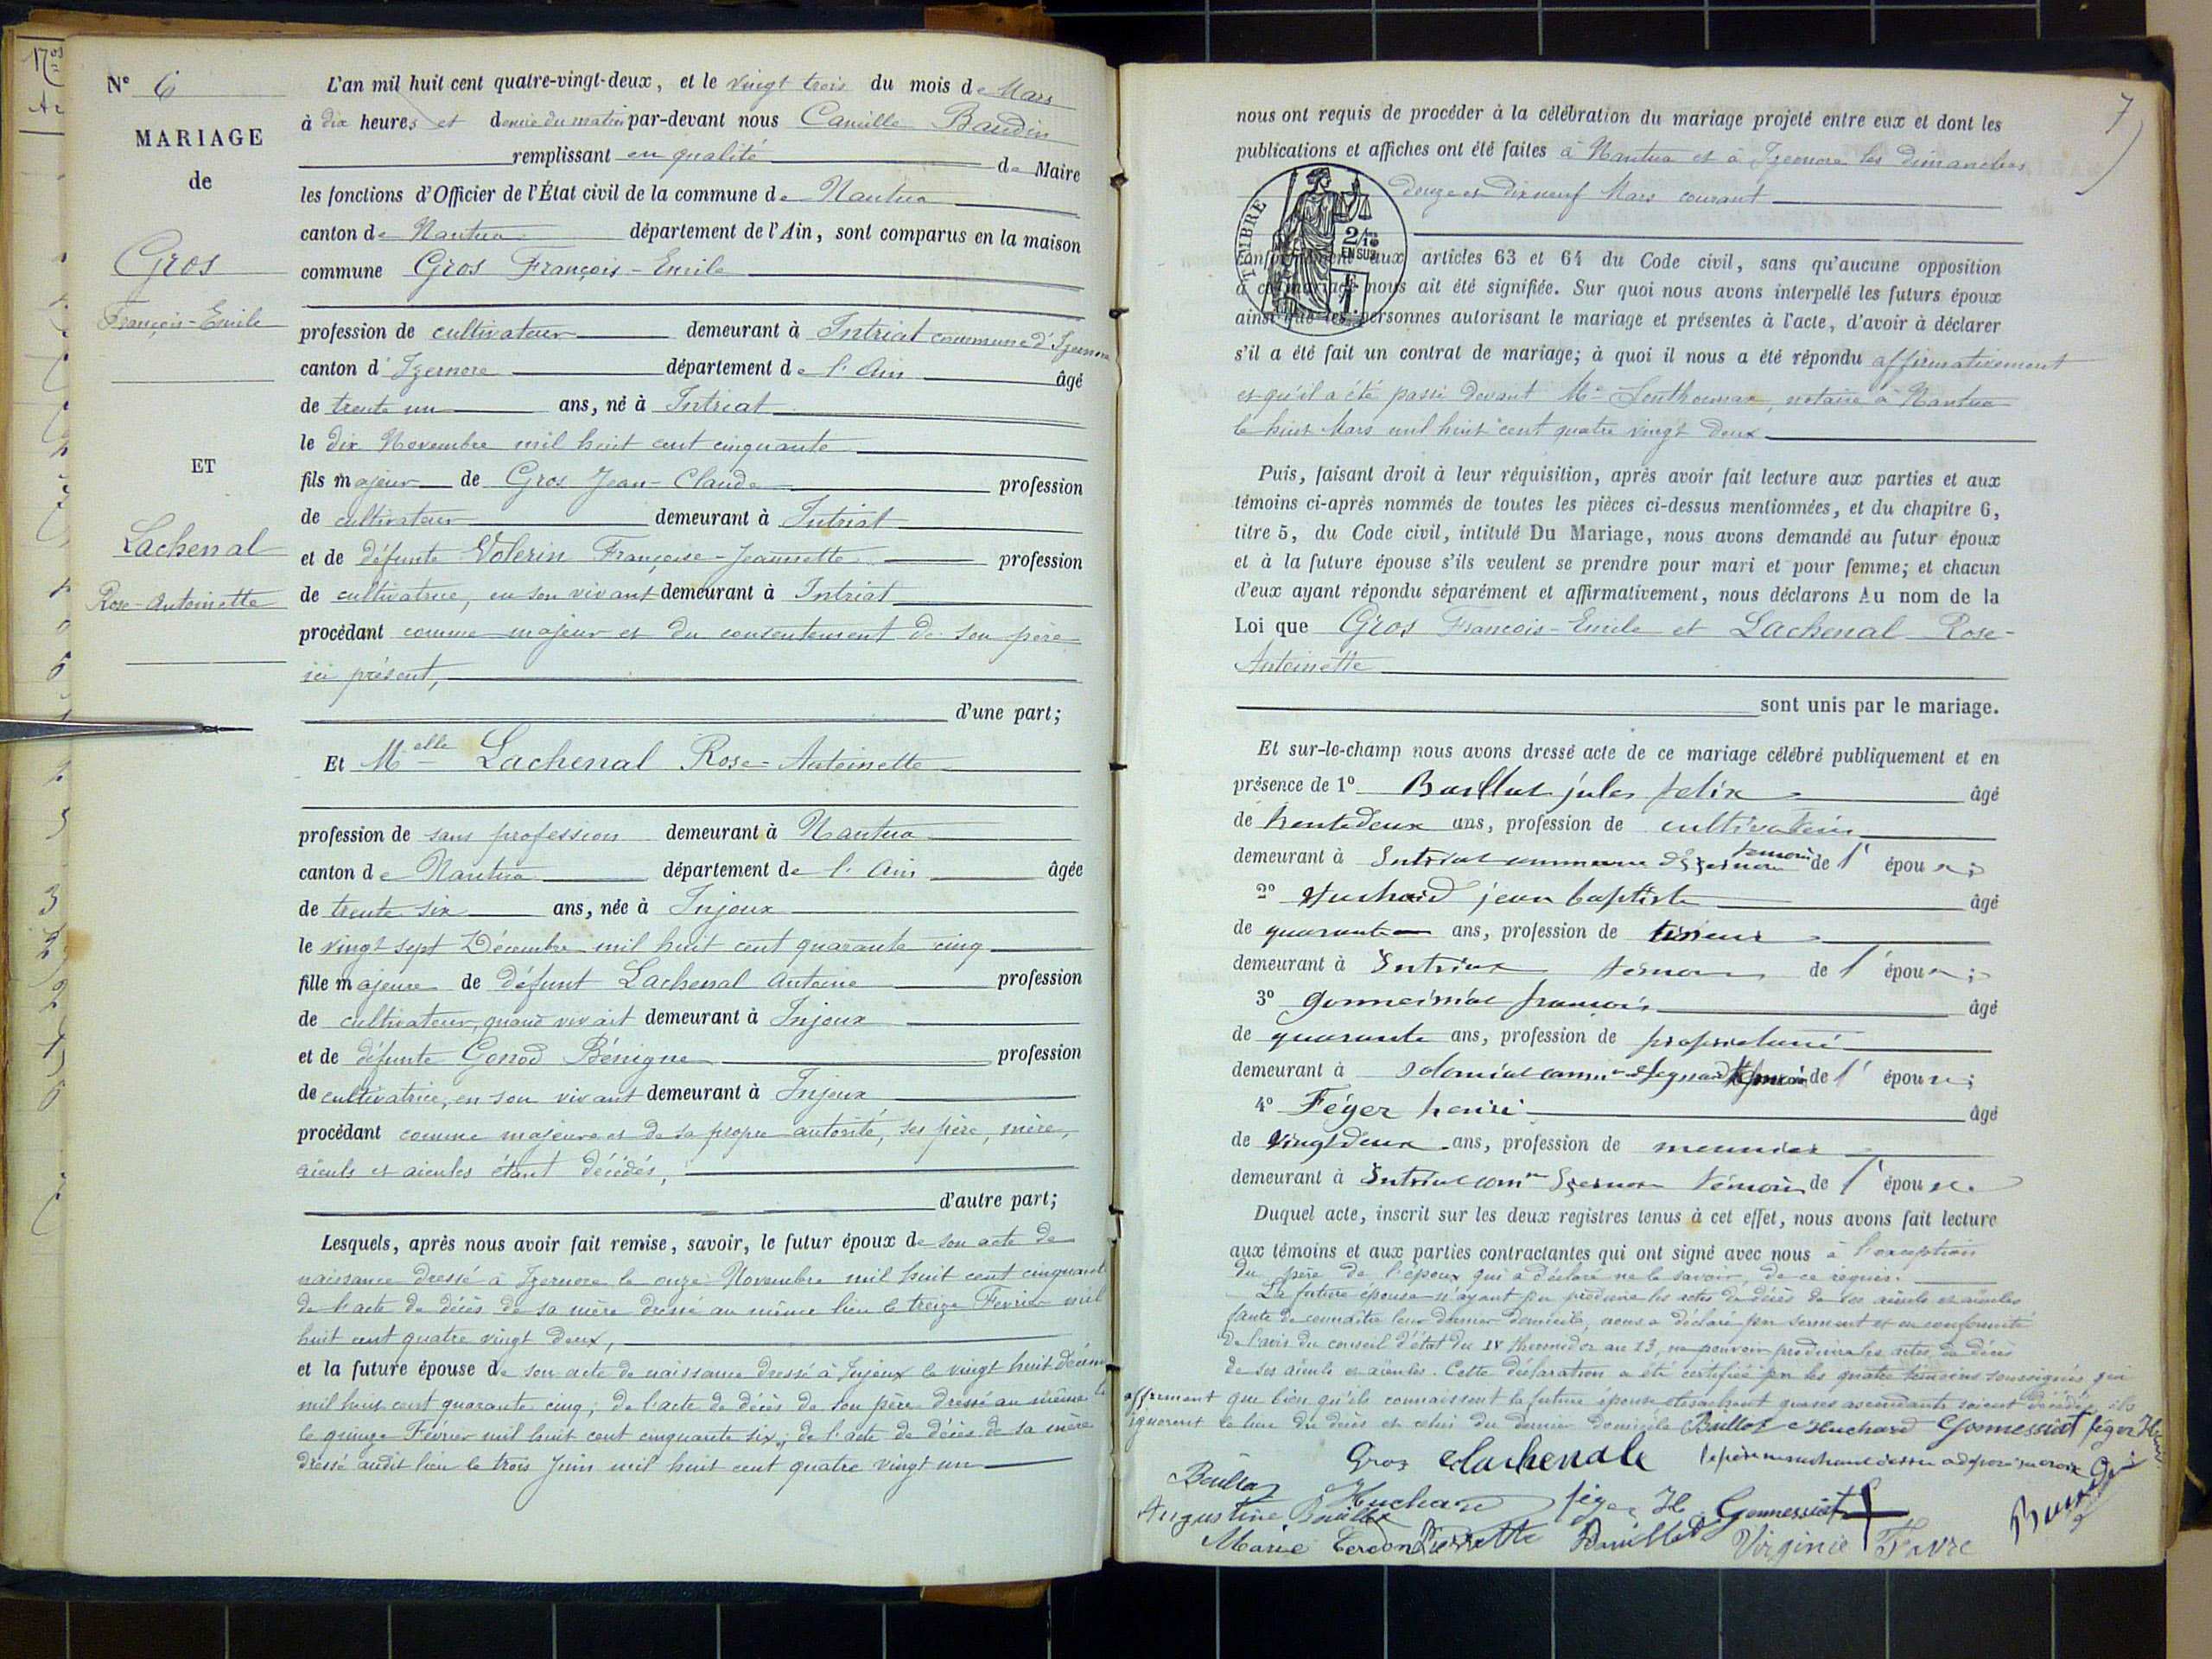 N° 6
MARIAGE
de
Gros
François-Emile
ET
Lachenal
Rose-Antoinette
L'an mil huit cent quatre-vingt-deux, et le vingt trois du mois de Mars
à dix heures et demie du matin par-devant nous Camille Baudin
remplissant en qualité de Maire
les fonctions d'Officier de l'État civil de la commune de Nantua
canton de Nantua département de l'Ain, sont comparus en la maison
commune Gros François-Emile
profession de cultivateur demeurant à Intriat commune d'Izernore
canton d'Izernore département de l'Ain âgé
de trente un ans, né à Intriat
le dix Novembre mil huit cent cinquante
fils majeur de Gros Jean-Claude profession
de cultivateur demeurant à Intriat
et de défunte Volerin Françoise-Jeannette profession
de cultivatrice, en son vivant demeurant à Intriat
procédant comme majeur et du consentement de son père
ici présent,
d'une part;
Et Melle Lachenal Rose-Antoinette
profession de sans profession demeurant à Nantua
canton de Nantua département de l'Ain âgée
de trente six ans, née à Injoux
le vingt sept Décembre mil huit cent quarante cinq
fille majeure de défunt Lachenal Antoine profession
de cultivateur, quand vivait demeurant à Injoux
et de défunte Gonod Bénigne profession
de cultivatrice, en son vivant demeurant à Injoux
procédant comme majeure et de sa propre autorité, ses père, mère,
aieuls et aieules étant décédés,
d'autre part;
Lesquels, après nous avoir fait remise, savoir, le futur époux de son acte de
naissance dressé à Izernore le onze Novembre mil huit cent cinquante
de l'acte de décès de sa mère dressé au même lieu le treize Février mil
huit cent quatre vingt deux,
et la future épouse de son acte de naissance dressé à Injoux le vingt huit Décem
mil huit cent quarante cinq; de l'acte de décès de son père dressé au même
le quinze Février mil huit cent cinquante six; de l'acte de décès de sa mère
dressé audit lieu le trois Juin mil huit cent quatre vingt un
7
nous ont requis de procéder à la célébration du mariage projeté entre eux et dont les
publications et affiches ont été faites à Nantua et à Izernore les dimanches
douze et dix neuf Mars courant
TIMBRE
2/10
EN SUS
conformément aux articles 63 et 64 du Code civil, sans qu'aucune opposition
à ce mariage nous ait été signifiée. Sur quoi nous avons interpellé les futurs époux
ainsi que les personnes autorisant le mariage et présentes à l'acte, d'avoir à déclarer
s'il a été fait un contrat de mariage; à quoi il nous a été répondu affirmativement
et qu'il a été passé devant Me Southonnax, notaire à Nantua
le huit Mars mil huit cent quatre vingt deux
Puis, faisant droit à leur réquisition, après avoir fait lecture aux parties et aux
témoins ci-après nommés de toutes les pièces ci-dessus mentionnées, et du chapitre 6,
titre 5, du Code civil, intitulé Du Mariage, nous avons demandé au futur époux
et à la future épouse s'ils veulent se prendre pour mari et pour femme; et chacun
d'eux ayant répondu séparément et affirmativement, nous déclarons Au nom de la
Loi que Gros François-Emile et Lachenal Rose-
Antoinette
sont unis par le mariage.
Et sur-le-champ nous avons dressé acte de ce mariage célébré publiquement et en
présence de 1° jules felix âgé
de trente deux ans, profession de cultivateur
demeurant à Intriat commune d'izernore temoin de l'époux;
2° Huchard jean baptiste âgé
de quarante ans, profession de
demeurant à Intriat temoin de l'époux;
3° gonnessiat françois âgé
de quarante ans, profession de propriétaire
demeurant à Solomiat témoin de l'épouse;
4° Féger henri âgé
de vingt deux ans, profession de meunier
demeurant à Intriat comne Izernore témoin de l'épouse.
Duquel acte, inscrit sur les deux registres tenus à cet effet, nous avons fait lecture
aux témoins et aux parties contractantes qui ont signé avec nous à l'exception
du père de l'époux qui a déclaré ne le savoir, de ce requis.
La future épouse n'ayant pu produire les actes de décès de ses aieuls et aieules
faute de connaître leur dernier domicile, nous a déclaré par serment et en conformité
de l'avis du conseil d'état du 18 thermidor an 13, ne pouvoir produire les actes de décès
de ses aieuls et aieules. Cette déclaration a été certifiée par les quatre témoins soussignés qui
affirment que bien qu'ils connaissent la future épouse et sachant que ses ascendants soient décédés ils
ignorent le lieu du décès et celui du dernier domicile Baillod Huchard Gonnessiat féger Henri
Gros Lachenale
Huchard féger H Gonnessiat
Augustine
Marie Cerdon Pierrette Virginie Favre
Baudin